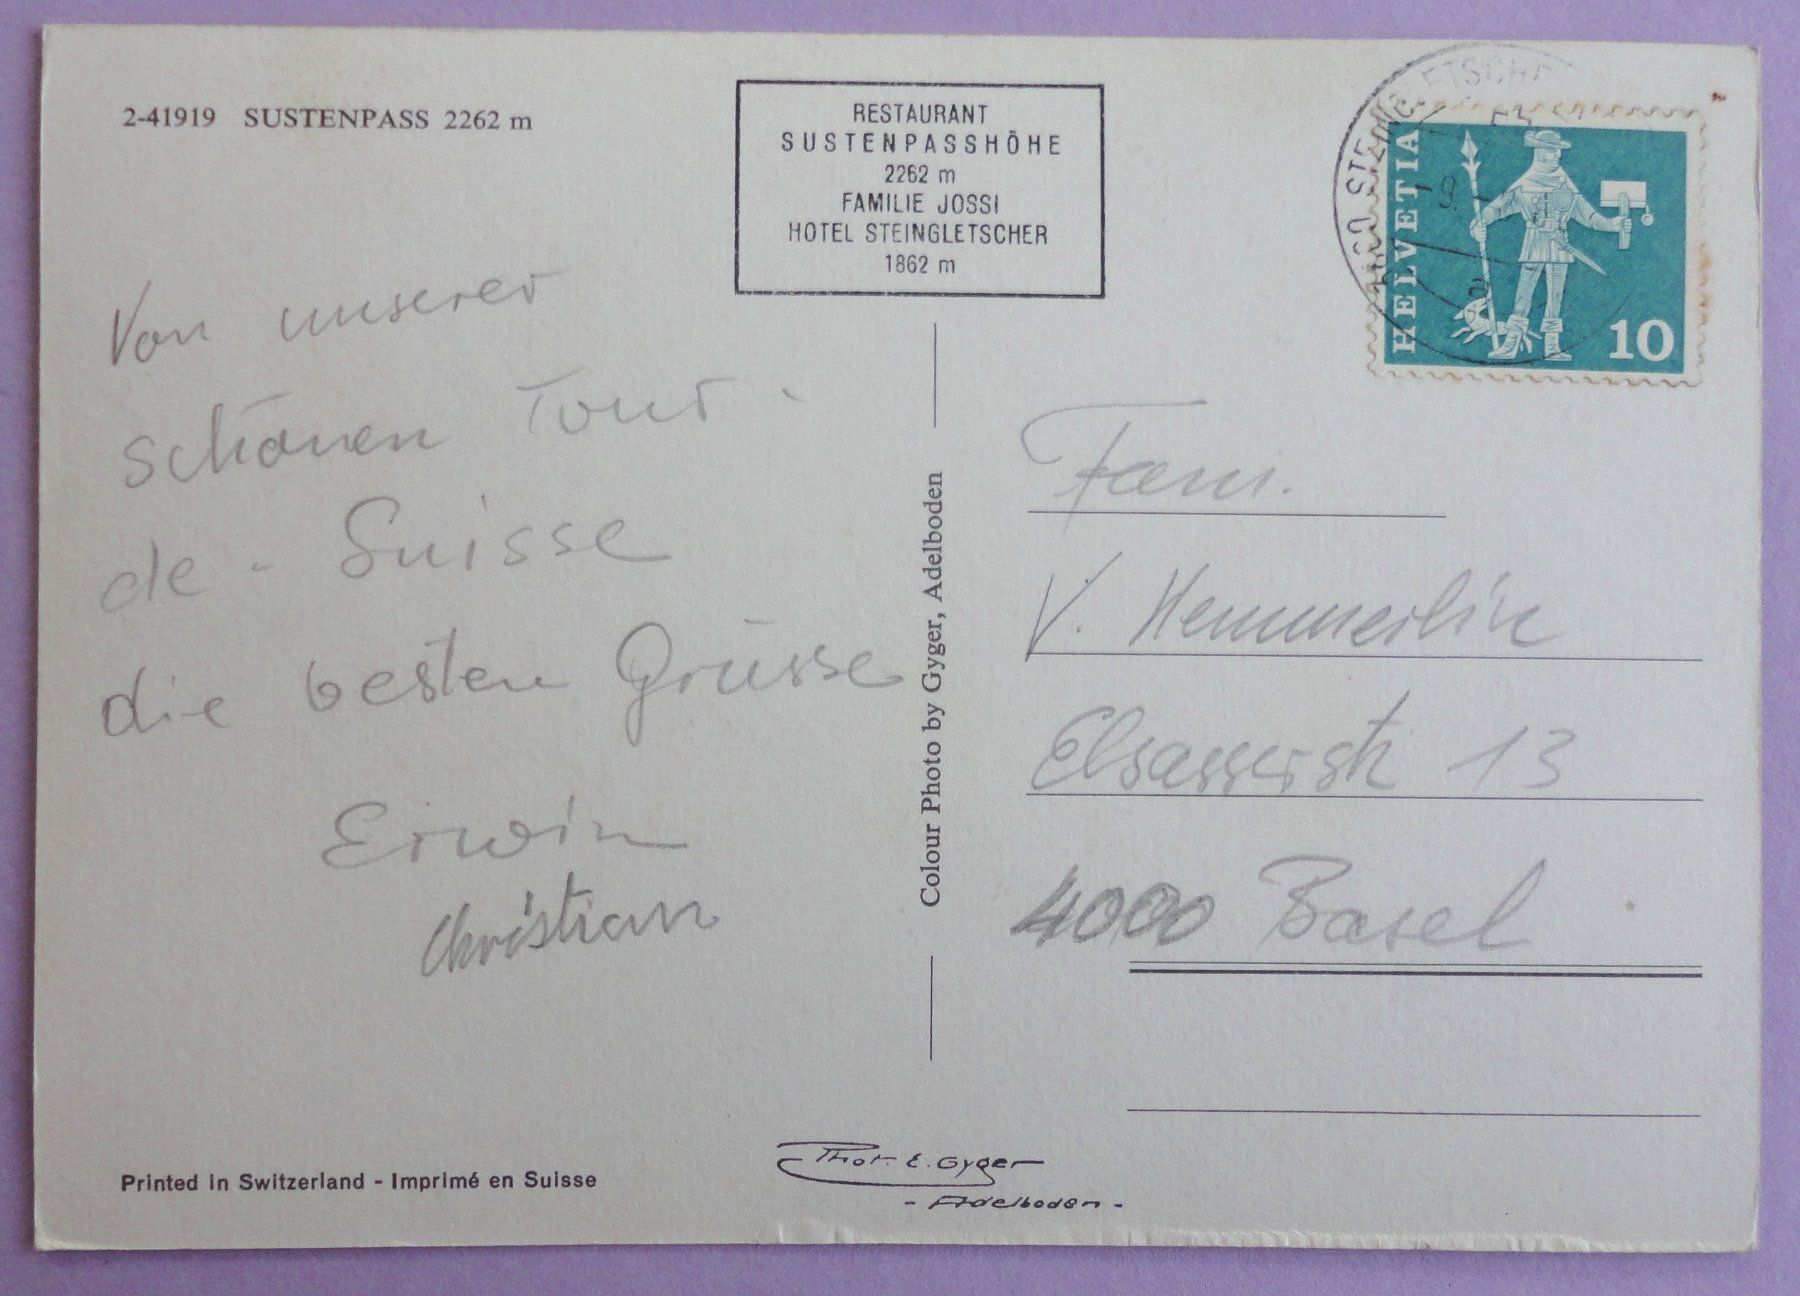 2-41919 SUSTENPASS 2262 m
RESTAURANT
SUSTENPASSHÖHE
2262 m
FAMILIE JOSSI
HOTEL STEINGLETSCHER
1862 m
HELVETIA
10
Von unserer
schönen Tour -
de - Suisse
die besten Grüsse
Erwin
Christian
Colour Photo by Gyger, Adelboden
Fam.
V. Hemmerlin
Elsasserstr 13
4000 Basel
Printed in Switzerland - Imprimé en Suisse
Phot. E. Gyger
- Adelboden -